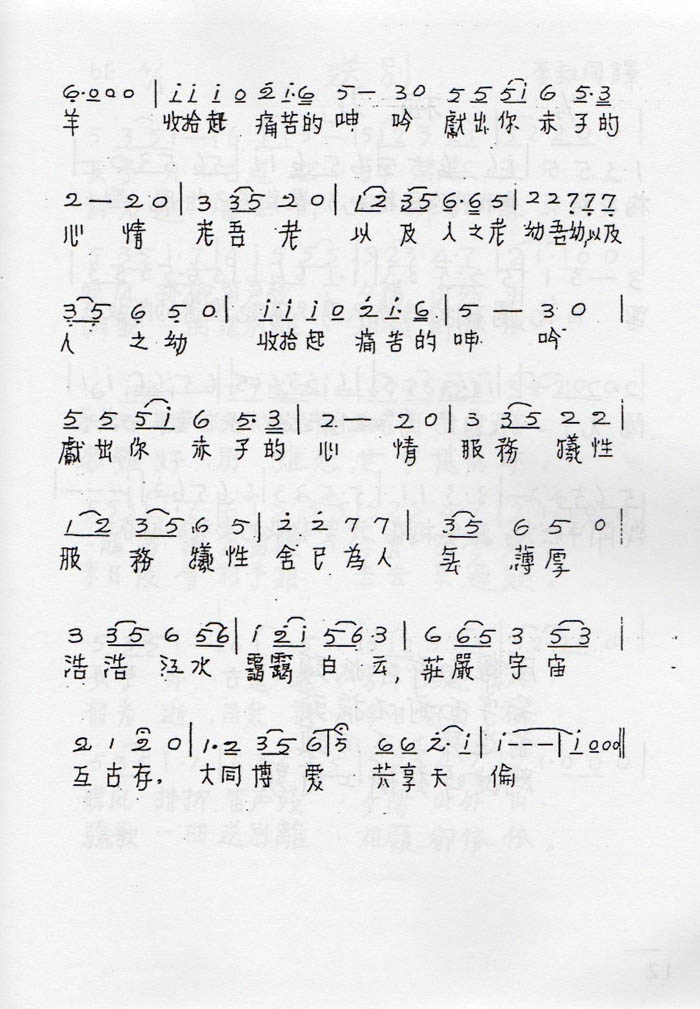 6·000 | i i i 0 2 i·6 5 — 30 5 5 5i 6 5·3
羊 收拾起 痛苦的 呻 吟 獻出你 赤子的
2 — 20 | 3 35 20 | 12 35 6·65 | 22777
心 情 老吾 老 以 及 人之老 幼吾幼以及
35 6 5 0 i i i 0 2 i·6 5 — 30 |
人 之幼 收拾起 痛苦的 呻 吟
5 5 5i 6 5·3 | 2 — 20 | 3 35 22 |
獻出你 赤子的 心 情 服務 犧性
12 35 65 | 2 2 7 7 35 6 5 0 |
服 務 犧性 舍己為人 無 薄厚
3 35 6 56 | i 2i 56·3 | 6 65 3 53 |
浩浩 江水 靄靄白 云,莊嚴 宇宙
2 1 2 0 | 1·2 35 6i5 66 2·i | i - - - | i000 ||
互古存. 大同博 愛 共享天 倫